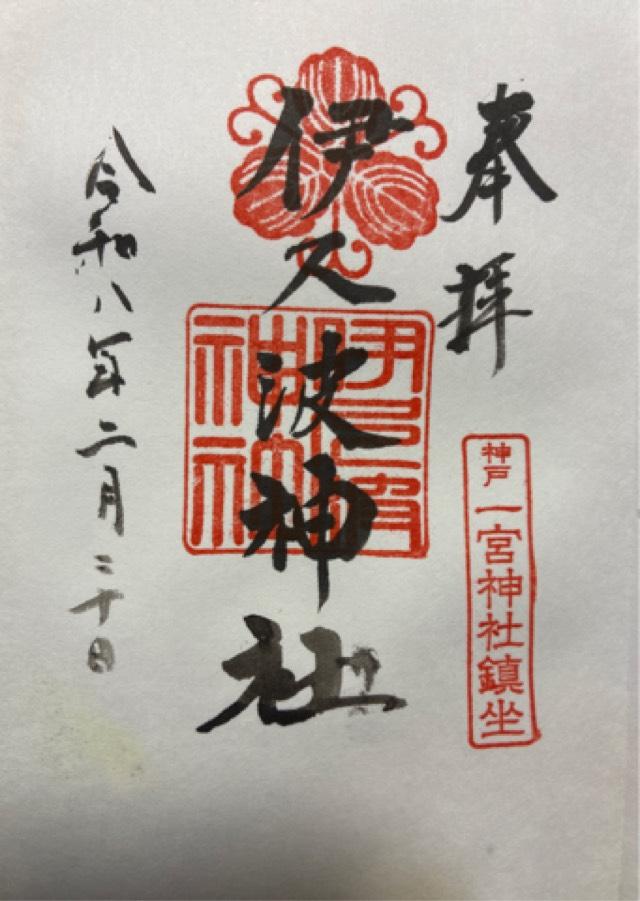 奉拝
神戸 一宮神社鎮坐
伊久波神社
伊久波神社
令和八年二月二十日